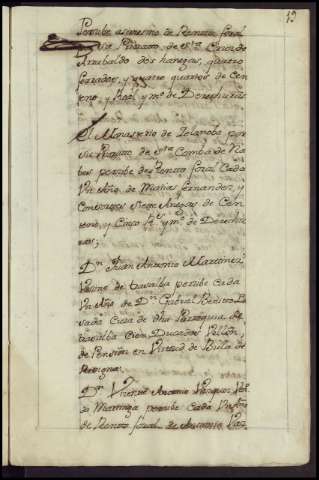 19
Percibe asimesmo de Renta foral
Priorato, de Sta. Cruz de
Arrabaldo dos hanegas, quatro
ferrados, y quatro quartos de Cen
teno, y Real y mo. de Derechuras
El Monasterio de Zelanoba por
su Priorato de Sta. Comba de Na
bes percibe de Renta foral Cada
Un Año, de Mathias fernandez, y
Consortes siete Anegas de Cen
teno, y Cinco Rs. y mo. de Derechu
ras;
Dn. Juan Antonio Martinez
Vecino de trasalba percibe Cada
Un Año de Dn. Gabriel
Cura de dha Parroquia de
trasalba Cien Ducados Vellon,
de Pension en Virtud de Bula de
Dn. Vicente Antonio
percibe Cada Un Año
de Renta foral de Antonio Vaz